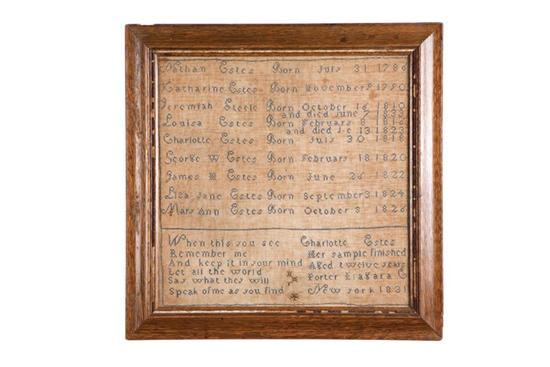 Nathan Estes Born July 31 1786
Katharine Estes Born November 8 1790
Jeremiah Steele Born October 16 1810
and died June 7 1833
Louisa Estes Born February 8 1816
and died 13 1823
Charlotte Estes Born July 30 1818
George W Estes Born February 18 1820
James H Estes Born June 26 1822
Liza Jane Estes Born September 3 1824
Mary Ann Estes Born October 8 1826
When this you see
Remember me
And keep it in your mind
Let all the world
Say what they will
Speak of me as you find
Charlotte Estes
Her sample finished
Aged twelve years
Porter Niagara C
New york 1831